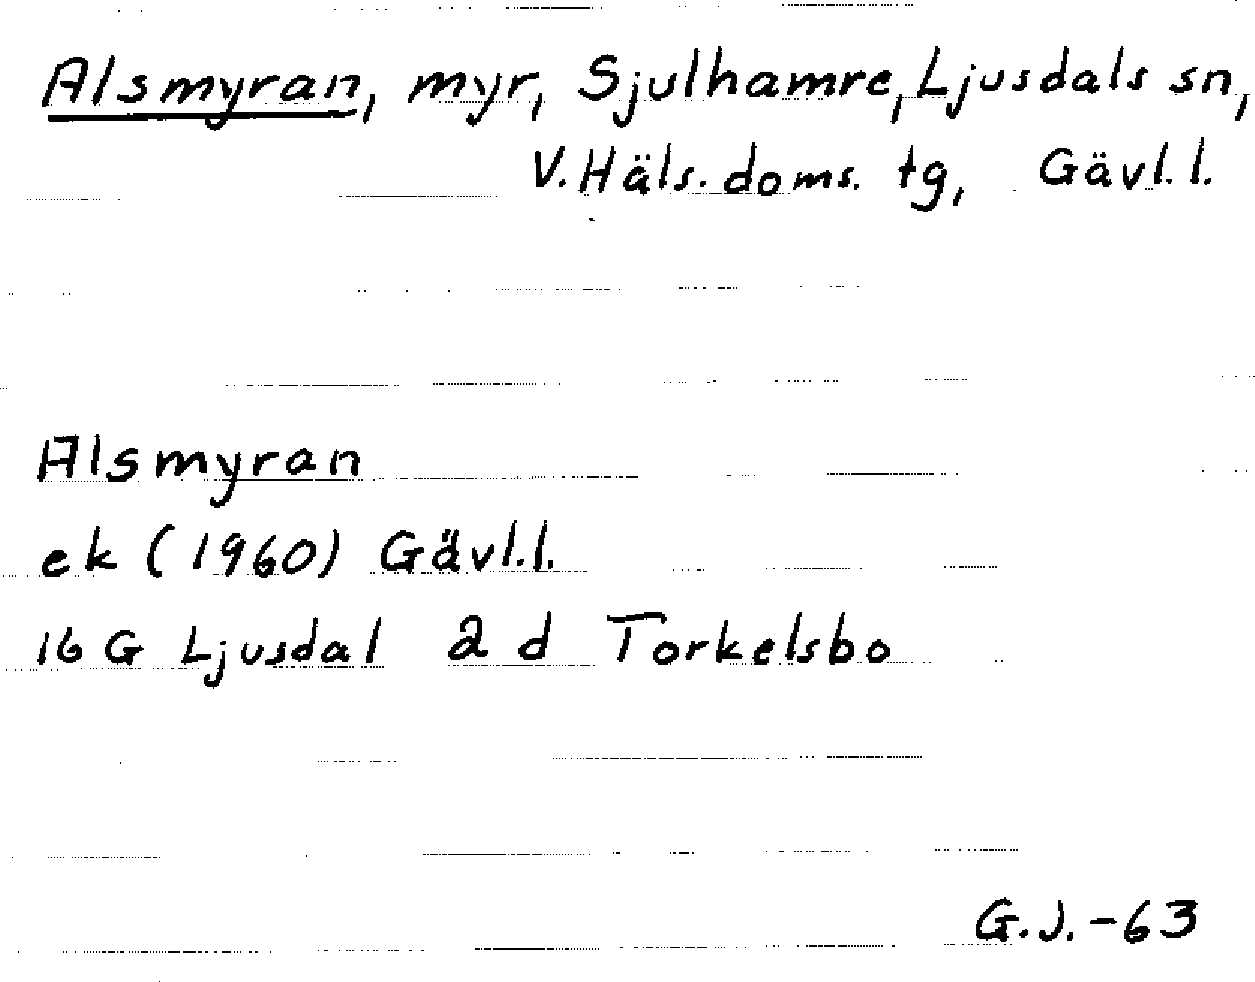 Alsmyran, myr, Sjulhamre, Ljusdals sn,
V. Häls. doms. tg, Gävl. l.
Alsmyran
ek (1960) Gävl. l.
16 G Ljusdal 2 d Torkelsbo
G. J. -63